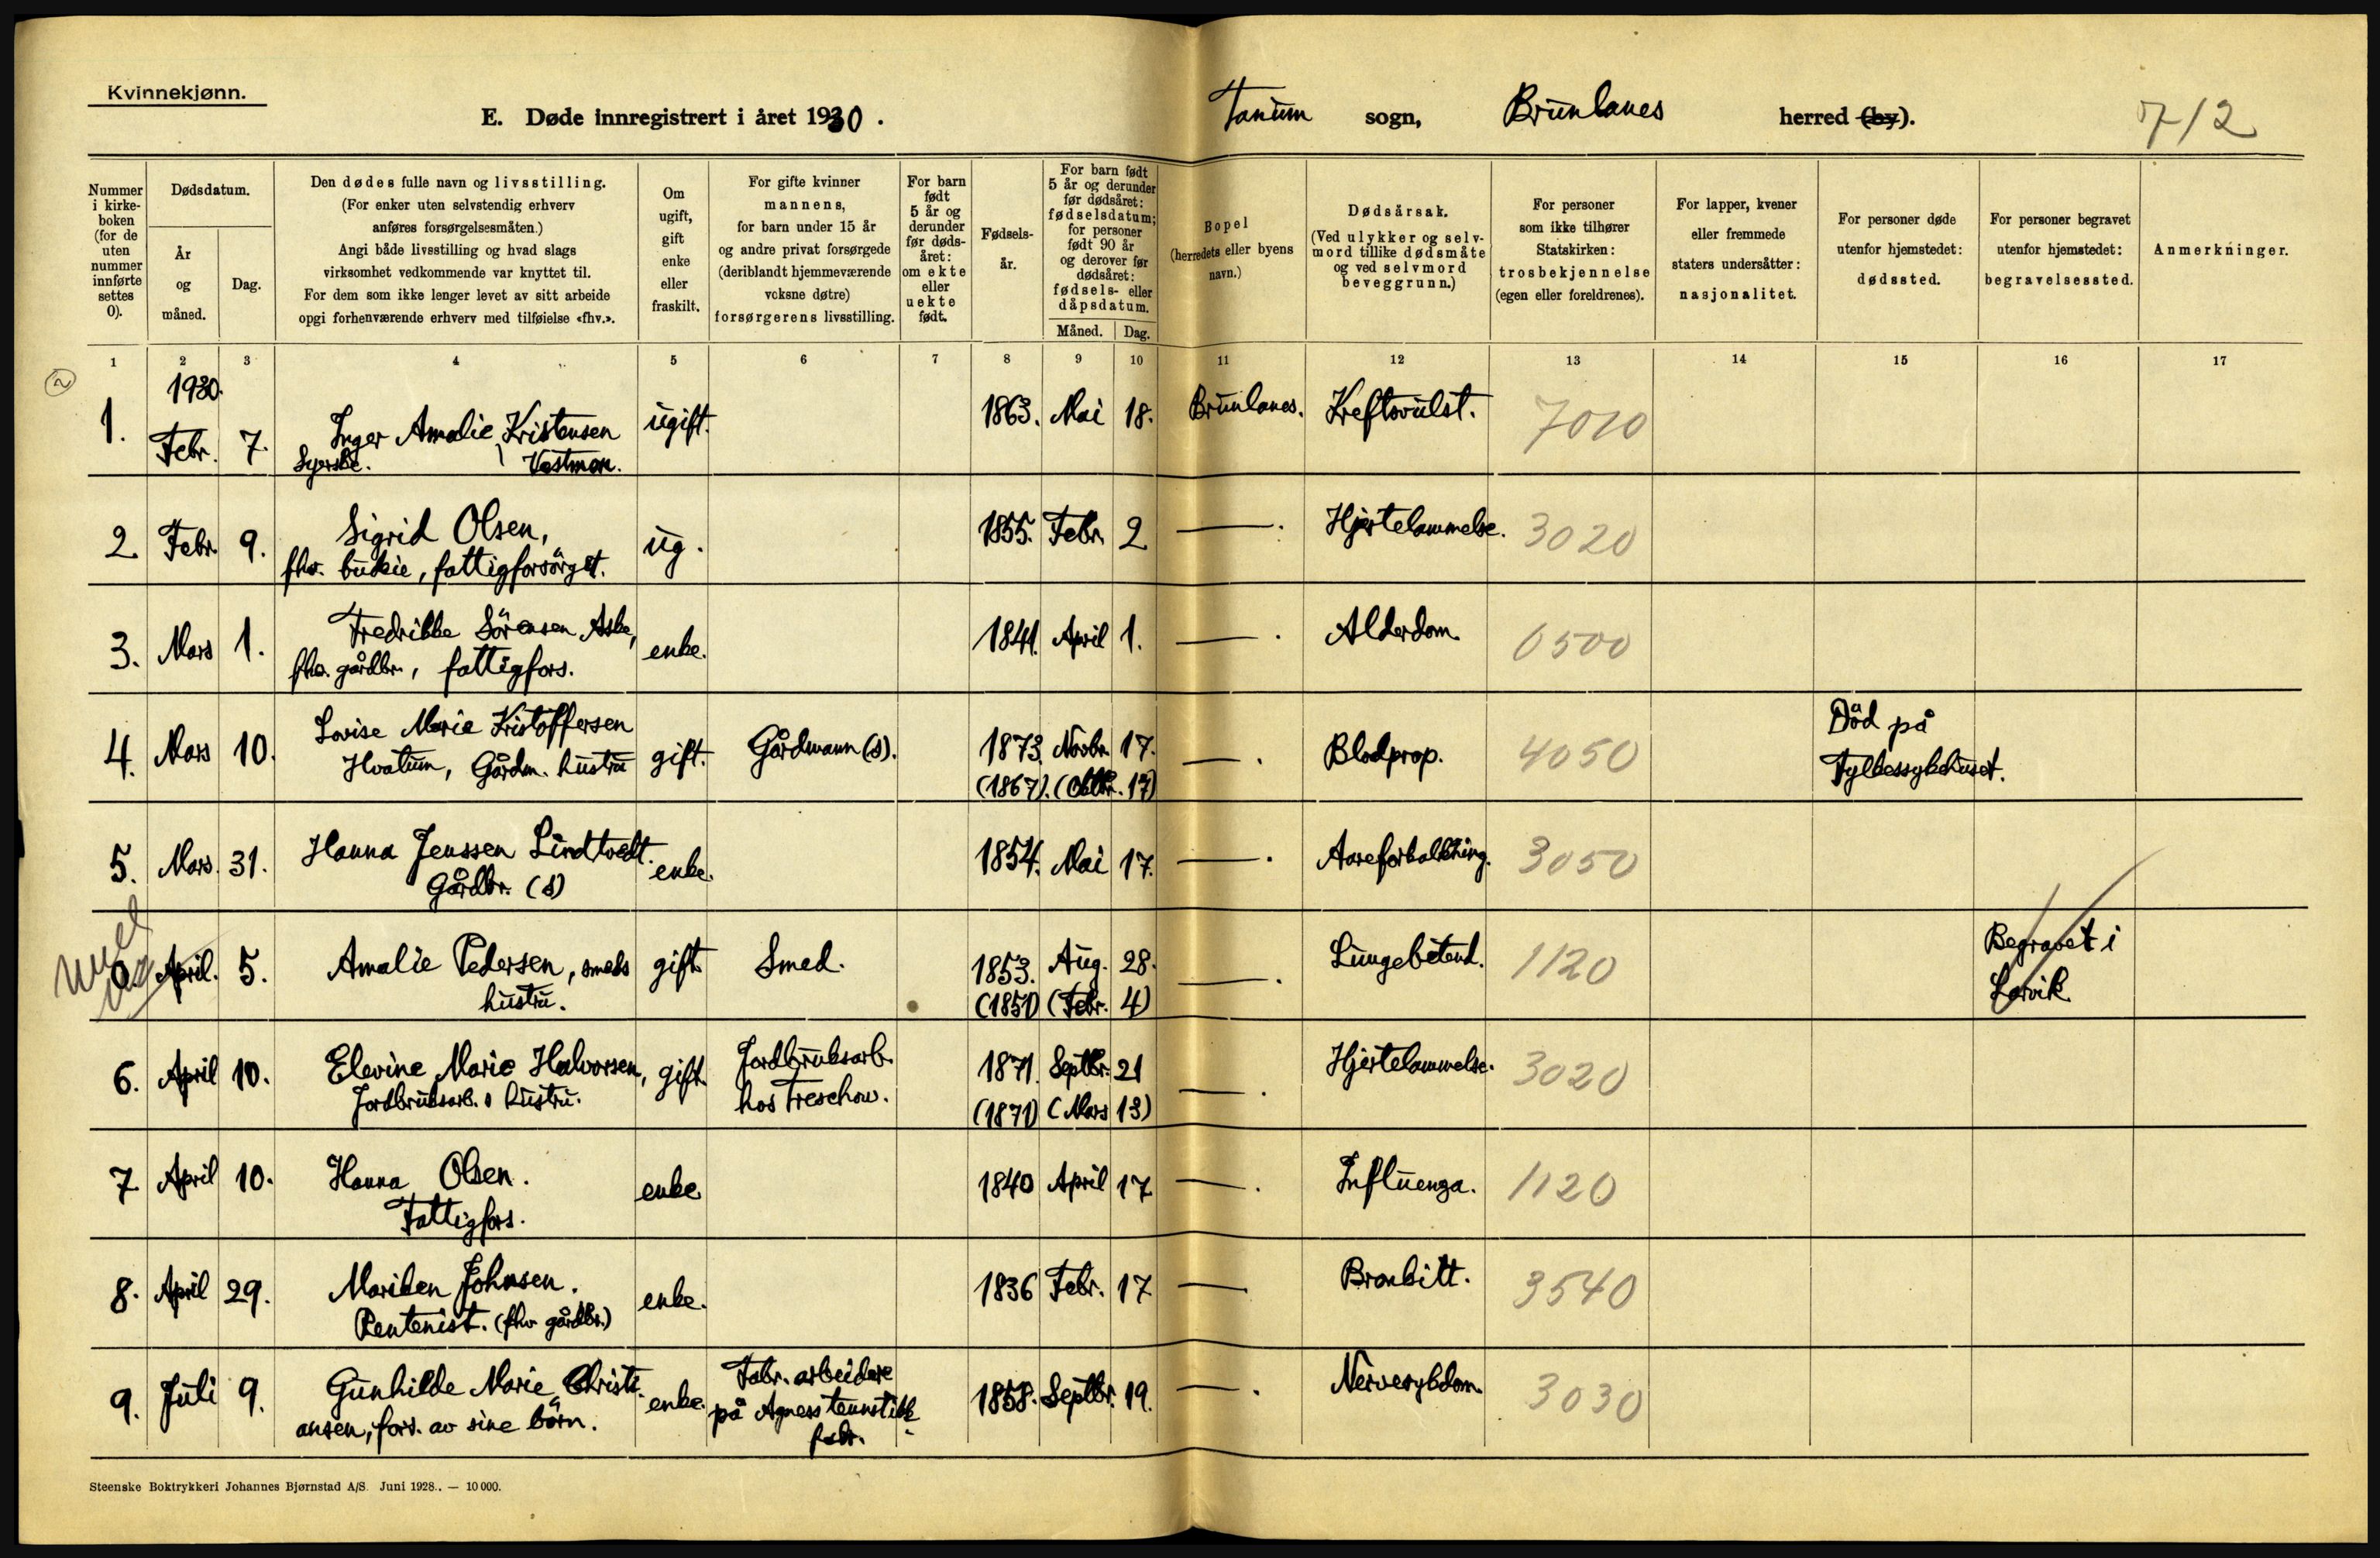 Kvinnekjønn.
E. Døde innregistrert i året 1930.
Tanum sogn, Brunlanes herred (by).
712
Nummer i kirkeboken (for de uten nummer innførte settes 0).
Dødsdatum.
År og måned.
Dag.
Den dødes fulle navn og livsstilling.
(For enker uten selvstendig erhverv
anføres forsørgelsesmåten.)
Angi både livsstilling og hvad slags
virksomhet vedkommende var knyttet til.
For dem som ikke lenger levet av sitt arbeide
opgi forhenværende erhverv med tilføielse «fhv.».
Om ugift, gift enke eller fraskilt.
For gifte kvinner
mannens,
for barn under 15 år
og andre privat forsørgede
(deriblandt hjemmeværende
voksne døtre)
forsørgerens livsstilling.
For barn født 5 år og derunder før dødsåret: om ekte eller uekte født.
Fødselsår.
For barn født
5 år og derunder
før dødsåret:
fødselsdatum;
for personer
født 90 år
og derover før
dødsåret:
fødsels- eller
dåpsdatum.
Måned. Dag.
Bopel
(herredets eller byens
navn.)
Dødsårsak.
(Ved ulykker og selv-
mord tillike dødsmåte
og ved selvmord
beveggrunn.)
For personer
som ikke tilhører
Statskirken:
trosbekjennelse
(egen eller foreldrenes).
For lapper, kvener
eller fremmede
staters undersåtter:
nasjonalitet.
For personer døde
utenfor hjemstedet:
dødssted.
For personer begravet
utenfor hjemstedet:
begravelsessted.
Anmerkninger.
1 2 3 4 5 6 7 8 9 10 11 12 13 14 15 16 17
2
1930.
1. Febr. 7. Inger Amalie Kristensen ugift. 1863. Mai 18. Brunlanes. Kreftsvulst. 7010
Syerske. Vestmon.
2. Febr. 9. Sigrid Olsen, ug. 1855. Febr. 2 —. Hjertelammelse. 3020
fhv. budeie, fattigforsörget.
3. Mars 1. Fredrikke Sörensen Aske, enke. 1841. April 1. —. Alderdom. 0500
fhv. gårdbr., fattigfors.
4. Mars 10. Lovise Marie Kristoffersen gift. Gårdmann (s). 1873. Novbr. 17. —. Blodprop. 4050 Död på
Hvatum, Gårdm. hustru (1867). (Oktbr. 17) Fylkessykehuset.
5. Mars. 31. Hanna Jenssen Lindtvedt. enke. 1854. Mai 17. —. Aareforkalkning. 3050
Gårdbr. (s)
0. April. 5. Amalie Pedersen, smeds gift Smed. 1853. Aug. 28. —. Lungebetend. 1120 Begravet i
hustru. (1851) (Febr. 4) Larvik.
6. April 10. Elevine Marie Halvorsen, gift. Jordbruksarb. 1871. Septbr. 21 —. Hjertelammelse. 3020
Jordbruksarb.s hustru. hos Treschow. (1871) (Mars 13)
7 April 10. Hanna Olsen. enke 1840 April 17 —. Influenza. 1120
Fattigfors.
8. April 29. Mariken Johnsen. enke. 1836 Febr. 17 — Bronkitt. 3540
Rentenist. (fhv gårdbr.)
9. Juli 9. Gunhilde Marie Christi- enke. Fabr. arbeidere 1858. Septbr. 19. —. Nervesykdom. 3030
ansen, fors. av sine börn. på Agnes tennstikk-
fabr.
Steenske Boktrykkeri Johannes Bjørnstad A/S. Juni 1928.. — 10 000.